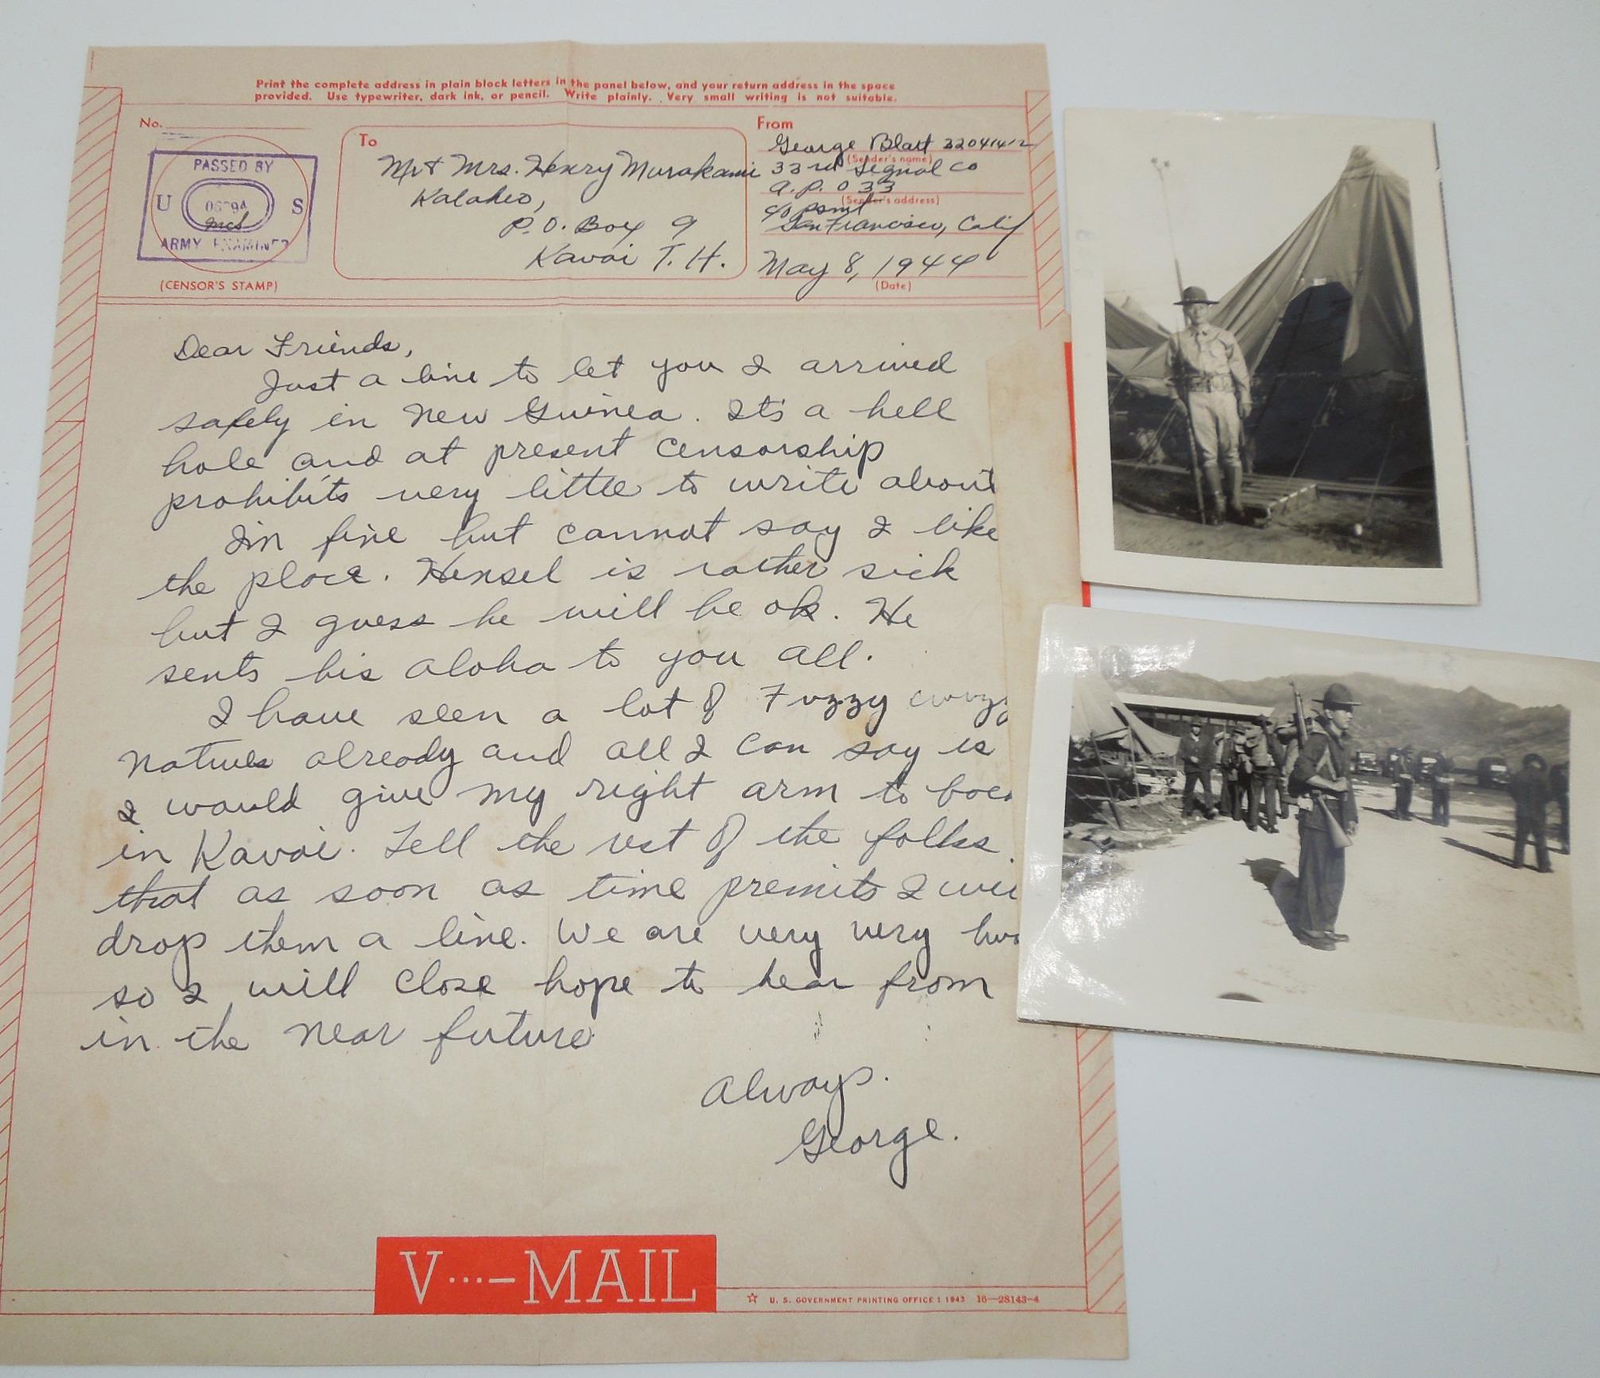 Print the complete address in plain block letters in the panel below, and your return address in the space
provided. Use typewriter, dark ink, or pencil. Write plainly. Very small writing is not suitable.
No.
PASSED BY
U S
ARMY EXAMINER
(CENSOR'S STAMP)
To
Mr & Mrs. Henry Murakami
Kalaheo,
P.O. Box 9
Kavai T.H.
From
George
(Sender's name)
33rd Signal Co
A.P.O 33
(Sender's address)
c/o psmt
San Francisco, Calif
May 8, 1944
(Date)
Dear Friends,
Just a line to let you I arrived
safely in New Guinea. It's a hell
hole and at present censorship
prohibits very little to write about
I'm fine but cannot say I like
the place. Hensel is rather sick
but I guess he will be ok. He
sents his aloha to you all.
I have seen a lot of Fuzzy wuzzy
natives already and all I can say is
I would give my right arm to
in Kavai. Tell the rest of the folks
that as soon as time premits I
drop them a line. We are very very
so I will close hope to hear from
in the near future
Always.
George.
V ...— MAIL
☆ U. S. GOVERNMENT PRINTING OFFICE : 1943 16—28143-4